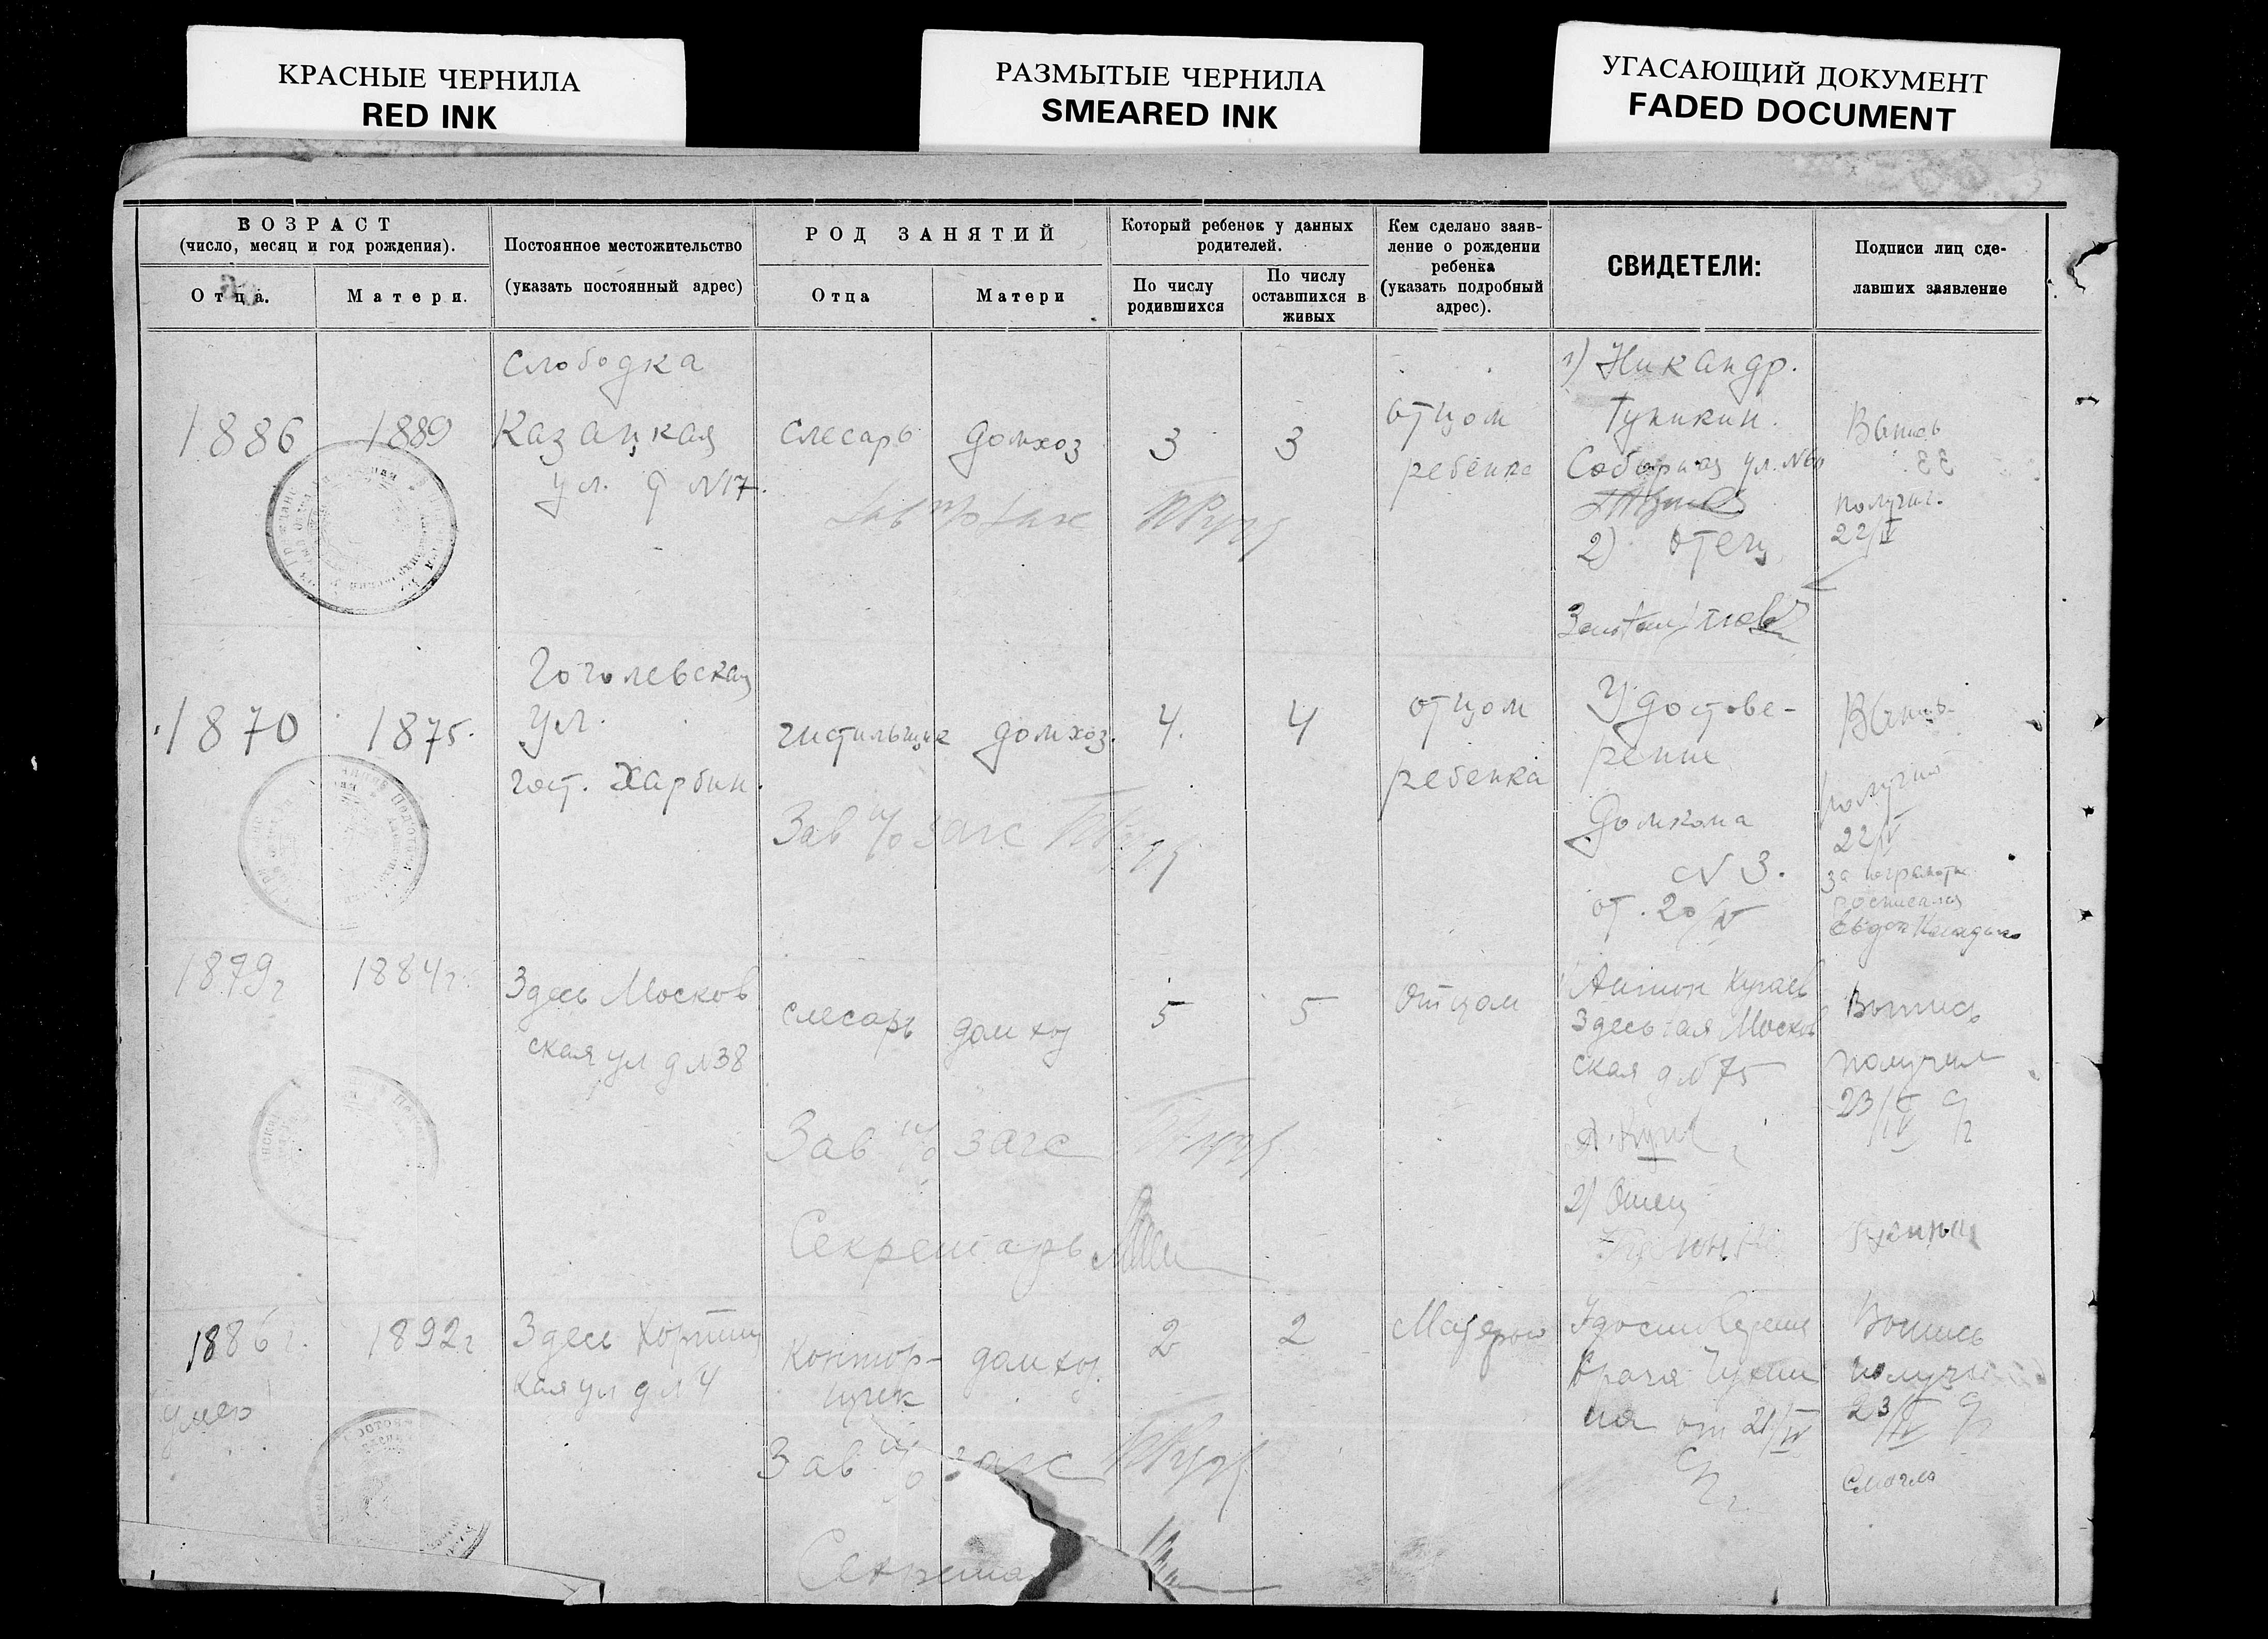 КРАСНЫЕ ЧЕРНИЛА
RED INK
РАЗМЫТЫЕ ЧЕРНИЛА
SMEARED INK
УГАСАЮЩИЙ ДОКУМЕНТ
FADED DOCUMENT
ВОЗРАСТ
(число, месяц и год рождения).
Отца.
Матери.
Постоянное местожительство
(указать постоянный адрес)
РОД ЗАНЯТИЙ
Отца
Матери
Который ребенок у данных
родителей.
По числу
родившихся
По числу
оставшихся в
живых
Кем сделано заяв-
ление о рождении
ребенка
(указать подробный
адрес).
СВИДЕТЕЛИ:
Подписи лиц сде-
лавших заявление
1886
1889
Слободка
Казацкая
ул. д №17.
слесарь
домхоз
3
3
отцом
ребенка
1) Никандр.
Тупикин.
Соборная ул.
2) отец
Выпись
получил.
22/IV
1870
1875.
Гоголевская
ул.
гост. Харбин.
чистильщик
домхоз.
4.
4
отцом
ребенка
Удостове-
рение
Домкома
№ 3.
от. 20/IV
Выпись
получил
22/IV
за неграмотн.
росписался
Зав п/о загс
1879г
1884г.
Здесь Москов
ская ул д №38
слесарь
дом хоз
5
5
Отцом
Антон
Здесь Москов
ская д №75
2) Отец
Выпись
получил
23/IV
Зав п/о загс
Секретарь
1886г.
1892г
Здесь
кая ул д №4
контор-
щик
дом хоз.
2
2
Матерью
Удостоверение
врача
на от 21/IV
Выпись
получ
23/IV
Зав п/о загс
Секрета